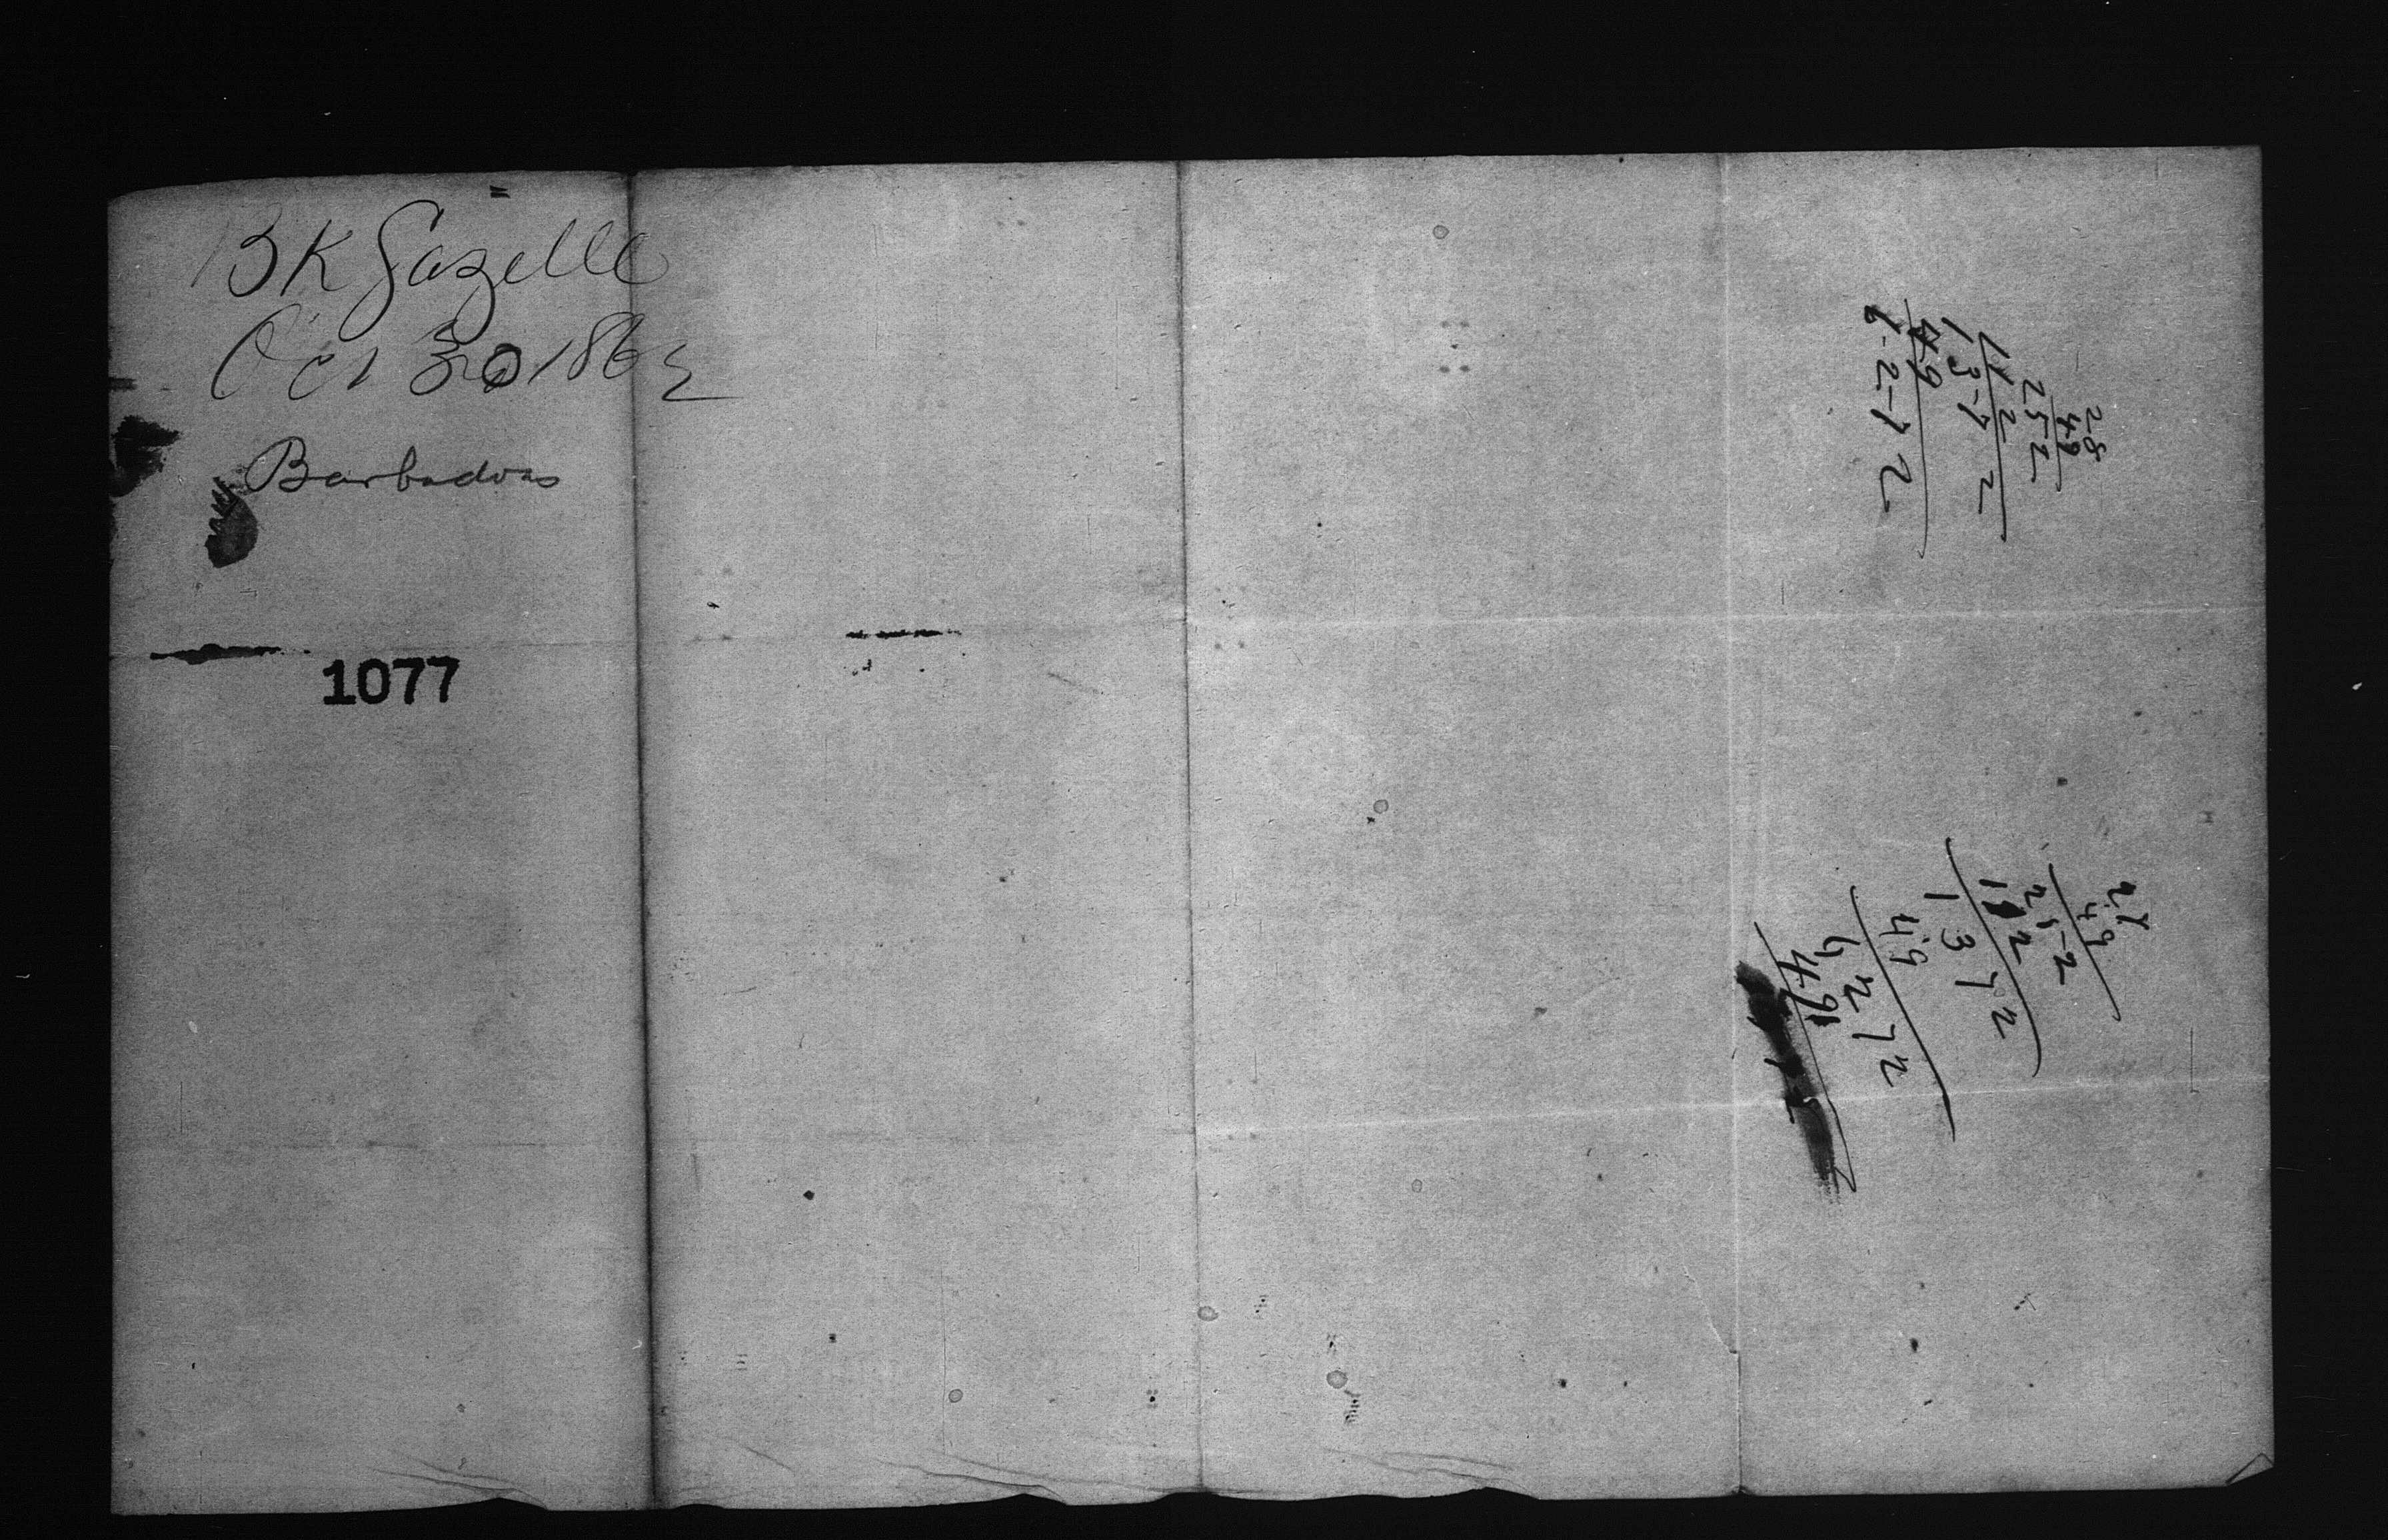 BK Gazelle
Oct 30 1862
Barbadoes
1077
28
49
252
112
1372
49
6272
28
49
252
112
1372
49
6272
49